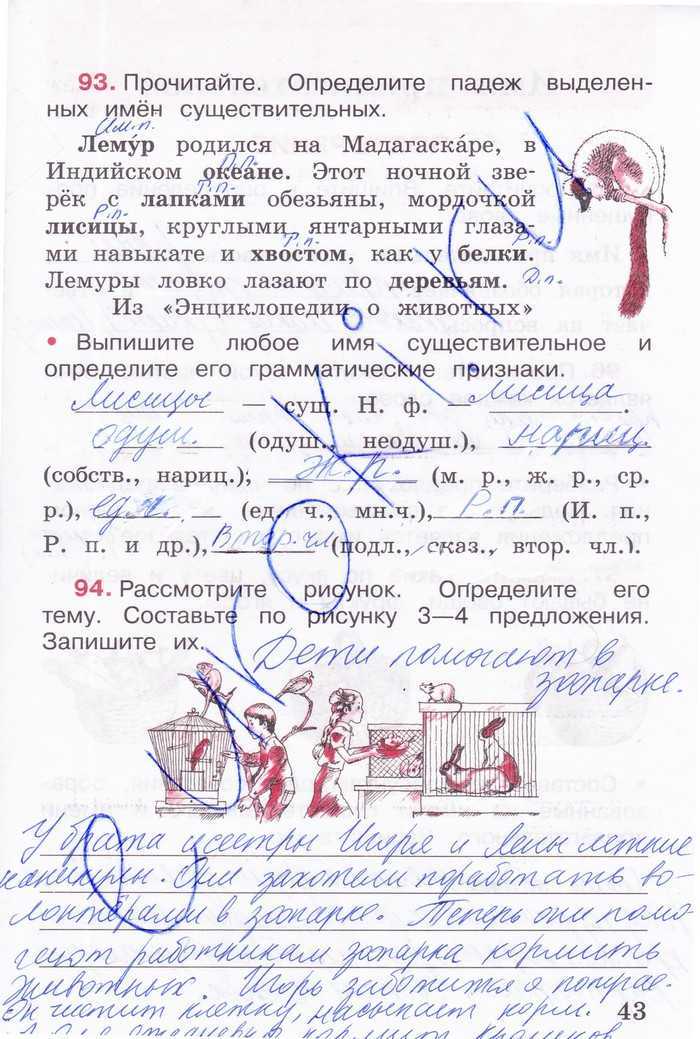 93. Прочитайте. Определите падеж выделен-
ных имён существительных.
Им.п.
Лему́р родился на Мадагаска́ре, в
П.п.
Индийском океане. Этот ночной зве-
Р.п.
рёк с лапками обезьяны, мордочкой
Р.п.
лисицы, круглыми янтарными глаза-
Р.п. Р.п.
ми навыкате и хвостом, как у белки.
Лемуры ловко лазают по деревьям. Д.п.
Из «Энциклопедии о животных»
• Выпишите любое имя существительное и
определите его грамматические признаки.
Лисицы — сущ. Н. ф. — лисица.
одуш. (одуш., неодуш.), нариц.
(собств., нариц.); ж.р. (м. р., ж. р., ср.
р.), ед.ч. (ед. ч., мн.ч.), Р.п. (И. п.,
Р. п. и др.), Втор.чл. (подл., сказ., втор. чл.).
94. Рассмотрите рисунок. Определите его
тему. Составьте по рисунку 3—4 предложения.
Запишите их. Дети помогают в
зоопарке.
У брата и сестры Игоря и Лены летние
каникулы. Они захотели поработать во-
лонтёрами в зоопарке. Теперь они помо
гают работникам зоопарка кормить
животных. Игорь заботится о попугае.
Он чистит клетку, насыпает корм. 43
кормит кроликов